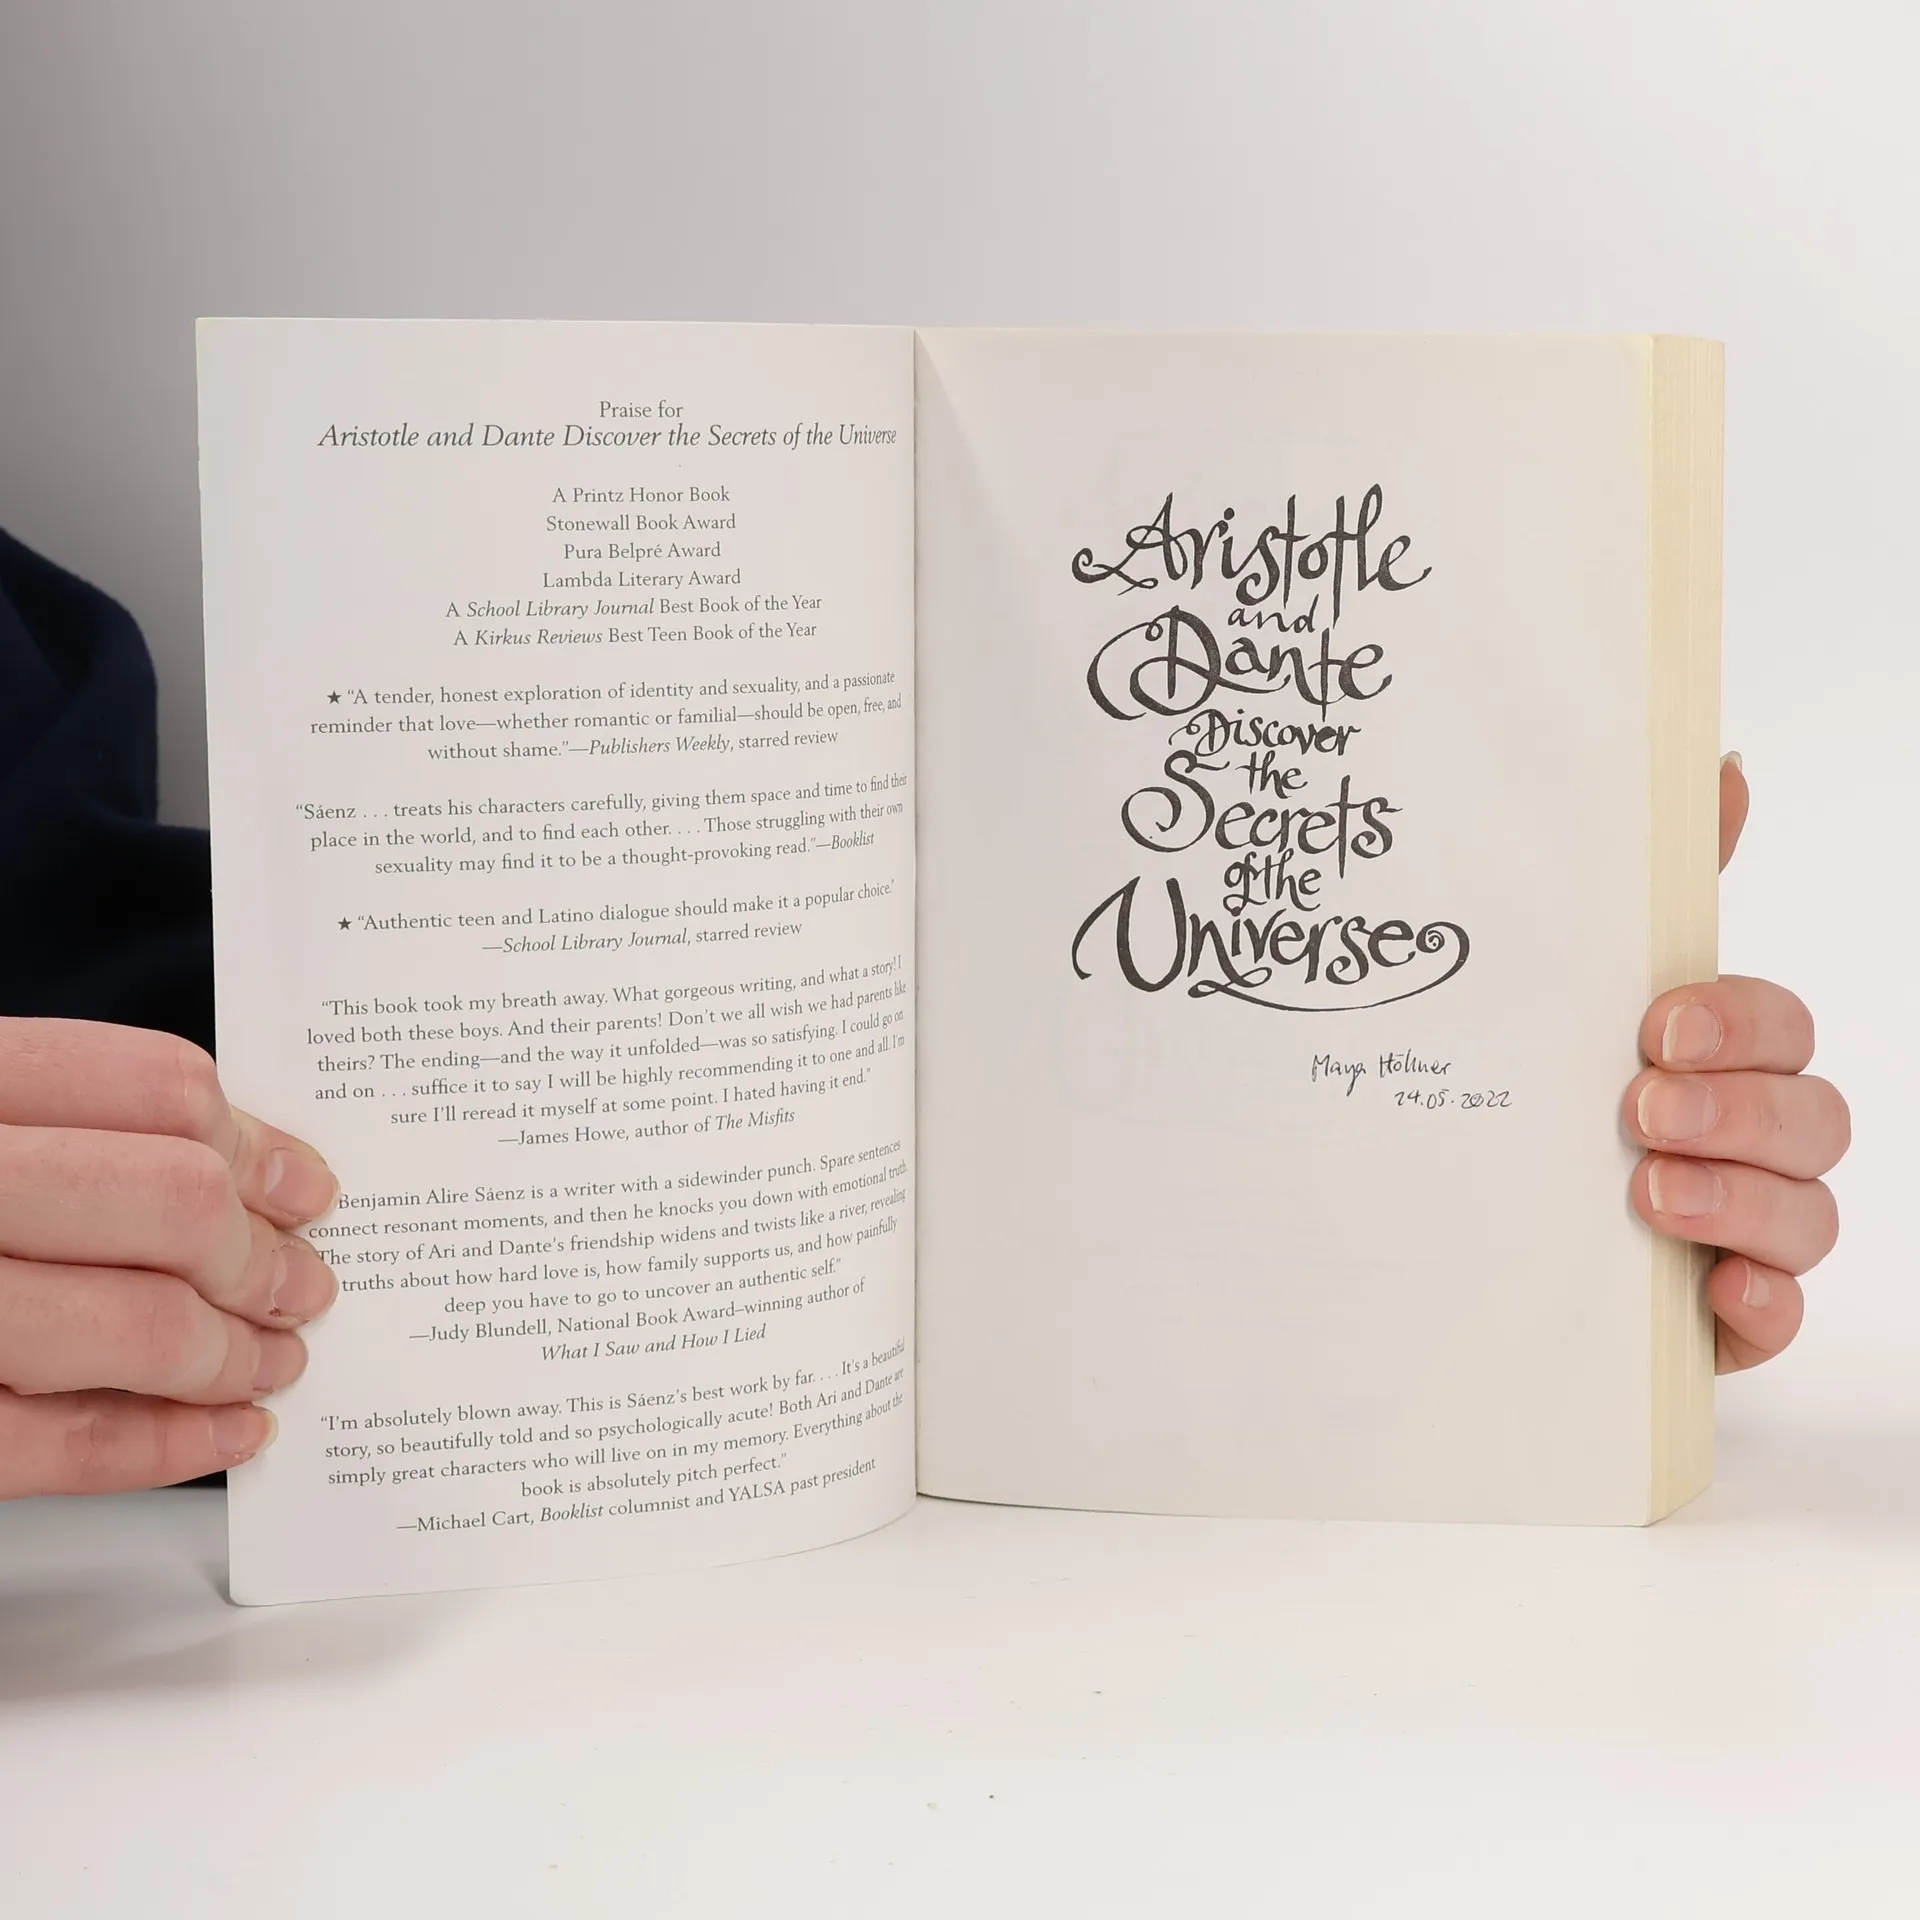 Praise for
Aristotle and Dante Discover the Secrets of the Universe
A Printz Honor Book
Stonewall Book Award
Pura Belpré Award
Lambda Literary Award
A School Library Journal Best Book of the Year
A Kirkus Reviews Best Teen Book of the Year
★ “A tender, honest exploration of identity and sexuality, and a passionate
reminder that love—whether romantic or familial—should be open, free, and
without shame.”—Publishers Weekly, starred review
“Sáenz . . . treats his characters carefully, giving them space and time to find their
place in the world, and to find each other. . . . Those struggling with their own
sexuality may find it to be a thought-provoking read.”—Booklist
★ “Authentic teen and Latino dialogue should make it a popular choice.”
—School Library Journal, starred review
“This book took my breath away. What gorgeous writing, and what a story! I
loved both these boys. And their parents! Don’t we all wish we had parents like
theirs? The ending—and the way it unfolded—was so satisfying. I could go on
and on . . . suffice it to say I will be highly recommending it to one and all. I’m
sure I’ll reread it myself at some point. I hated having it end.”
—James Howe, author of The Misfits
Benjamin Alire Sáenz is a writer with a sidewinder punch. Spare sentences
connect resonant moments, and then he knocks you down with emotional truth.
The story of Ari and Dante’s friendship widens and twists like a river, revealing
truths about how hard love is, how family supports us, and how painfully
deep you have to go to uncover an authentic self.”
—Judy Blundell, National Book Award–winning author of
What I Saw and How I Lied
“I’m absolutely blown away. This is Sáenz’s best work by far. . . . It’s a beautiful
story, so beautifully told and so psychologically acute! Both Ari and Dante are
simply great characters who will live on in my memory. Everything about the
book is absolutely pitch perfect.”
—Michael Cart, Booklist columnist and YALSA past president
Aristotle
and
Dante
Discover
the
Secrets
of the
Universe
Maya Höllner
24.05.2022